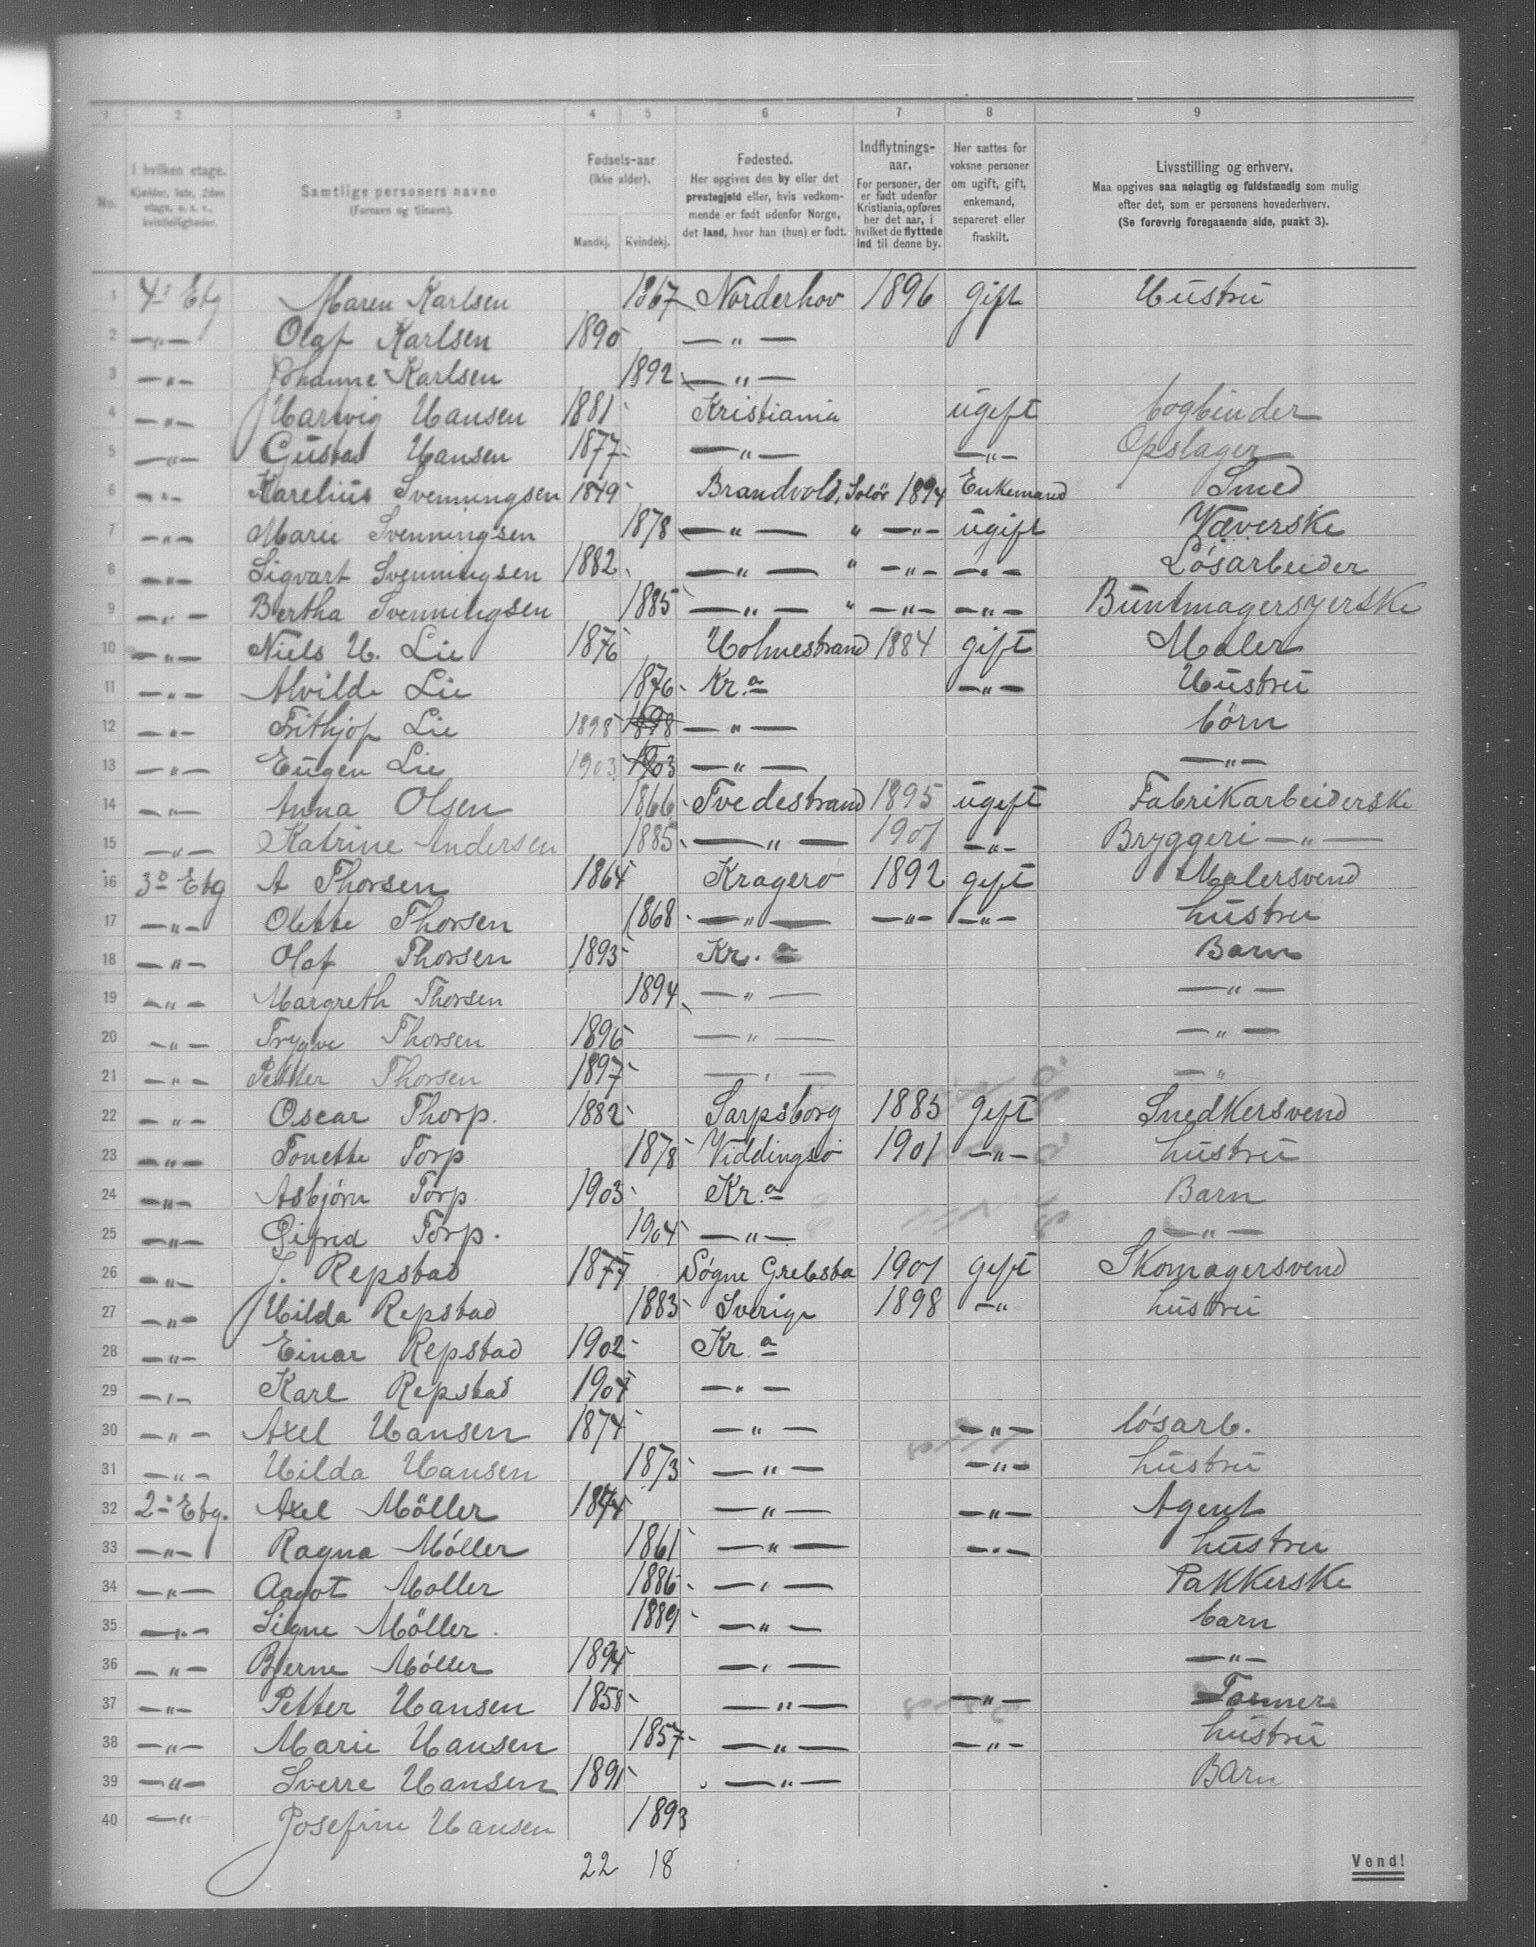 1 2 3 4 5 6 7 8 9
No. I hvilken etage. Kjelder, 1ste, 2den etage, o. s. v., kvistleiligheder. Samtlige personers navne (Fornavn og tilnavn). Fødsels-aar (ikke alder). Mandkj. Kvindekj. Fødested. Her opgives den by eller det prestegjeld eller, hvis vedkommende er født udenfor Norge, det land, hvor han (hun) er født. Indflytnings-aar. For personer, der er født udenfor Kristiania, opføres her det aar, i hvilket de flyttede ind til denne by. Her sættes for voksne personer om ugift, gift, enkemand, separeret eller fraskilt. Livsstilling og erhverv. Maa opgives saa nøiagtig og fuldstændig som mulig efter det, som er personens hovederhverv. (Se forøvrig foregaaende side, punkt 3).
1 4' Etg Maren Karlsen 1867 Norderhov 1896 gift Hustru
2 —"— Olaf Karlsen 1890 —"—
3 —"— Johanne Karlsen 1892 —"—
4 —"— Hartvig Hansen 1881 Kristiania ugift bogbinder
5 —"— Gustav Hansen 1877 —"— —"— Opslager
6 —"— Karelius Svenningsen 1849 Brandvold, Solör 1894 Enkemand Smed
7 —"— Marie Svenningsen 1878 —"— " —"— ugift Væverske
8 —"— Sigvart Svenningsen 1882 —"— " —"— —"— Lösarbeider
9 —"— Bertha Svenningsen 1885 —"— " —"— —"— Buntmagersyerske
10 —"— Niels H. Lie 1876 Holmestrand 1884 gift Maler
11 —"— Alvilde Lie 1876 Kr.a —"— Hustru
12 —"— Frithjof Lie 1898 1898 —"— börn
13 —"— Eugen Lie 1903 1903 —"— —"—
14 —"— Anna Olsen 1866 Tvedestrand 1895 ugift Fabrikarbeiderske
15 —"— Katrine Andersen 1885 —"— 1901 —"— Bryggeri —"—
16 3' Etg A Thorsen 1864 Kragerö 1892 gift Malersvend
17 —"— Olette Thorsen 1868 —"— —"— —"— hustru
18 —"— Olaf Thorsen 1893 Kr.a Barn
19 —"— Margreth Thorsen 1894 —"— —"—
20 —"— Trygve Thorsen 1896 —"— —"—
21 —"— Petter Thorsen 1897 —"— —"
22 —"— Oscar Thorp. 1882 Sarpsborg 1885 gift Snedkersvend
23 —"— Tonette Torp 1878 Viddingsö 1901 —"— hustru
24 —"— Asbjörn Torp 1903 Kr.a Barn
25 —"— Torp. 1904 —"— —"—
26 —"— J. Repstad 1877 Søgne 1901 gift Skomagersvend
27 —"— Hilda Repstad 1883 Sverige 1898 —" hustru
28 —"— Einar Repstad 1902 Kr.a
29 —"— Karl Repstad 1904 —"—
30 —"— Axel Hansen 1874 —"— —"— lösarb.
31 —"— Hilda Hansen 1873 —"— —"— hustru
32 2' Etg. Axel Möller 1874 —"— —"— Agent
33 —"— Ragna Möller 1861 —"— —"— hustru
34 —"— Aagot Möller 1886 —"— Pakkerske
35 —"— Signe Möller. 1889 —"— barn
36 —"— Bjerne Möller 1894 —"— —"—
37 —"— Petter Hansen 1858 —"— —"— Former
38 —"— Marie Hansen 1857 —"— —"— hustru
39 —"— Sverre Hansen 1891 —"— Barn
40 —" Josefine Hansen 1893
22 18
Vend!